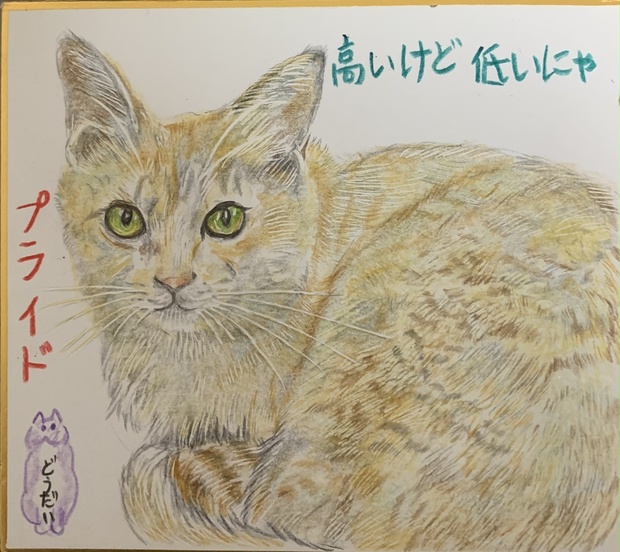 高いけど 低いにゃ
プライド
どうだい